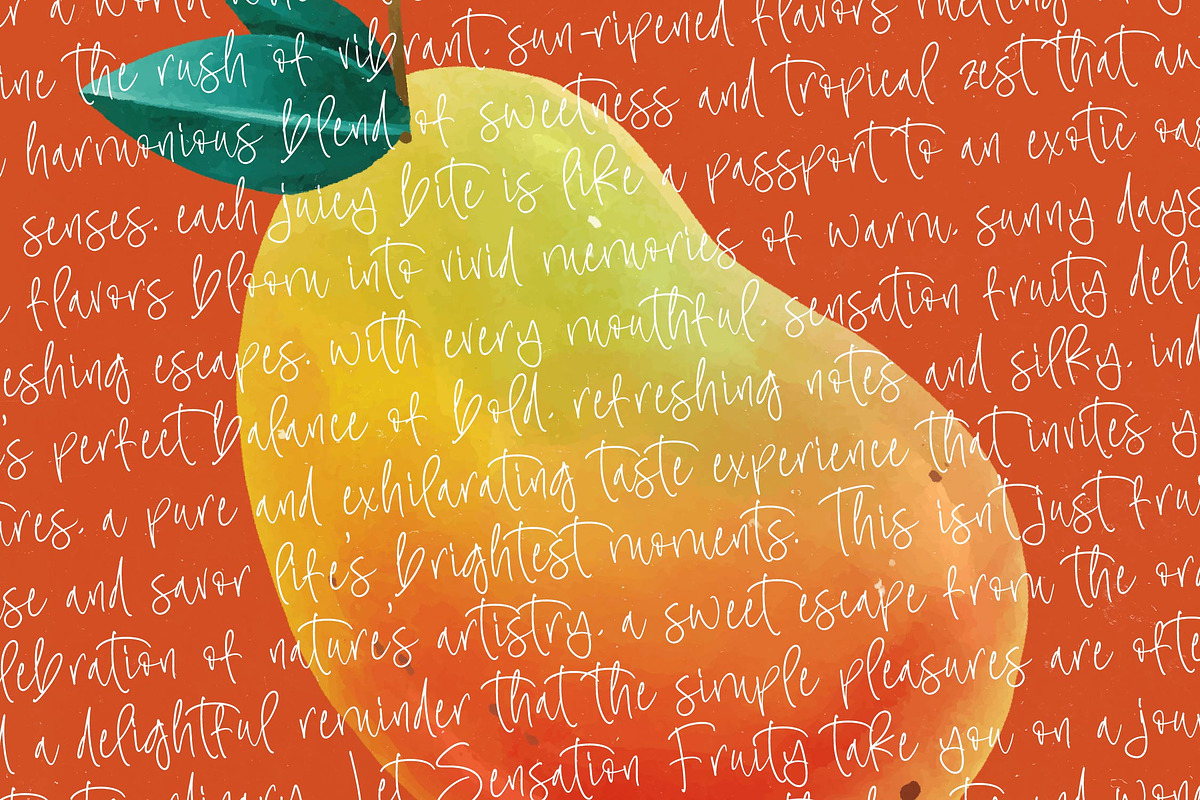 a world
the rush of vibrant. sun-ripened flavors melting
harmonious blend of sweetness and tropical zest that
senses. each juicy bite is like a passport to an exotic
flavors bloom into vivid memories of warm. sunny days
escapes. with every mouthful. sensation fruity
perfect balance of bold. refreshing notes and silky.
a pure and exhilarating taste experience that invites
and savor life's brightest moments. This isn't just
of nature's artistry. a sweet escape from the
a delightful reminder that the simple pleasures are
Let Sensation Fruity take you on a